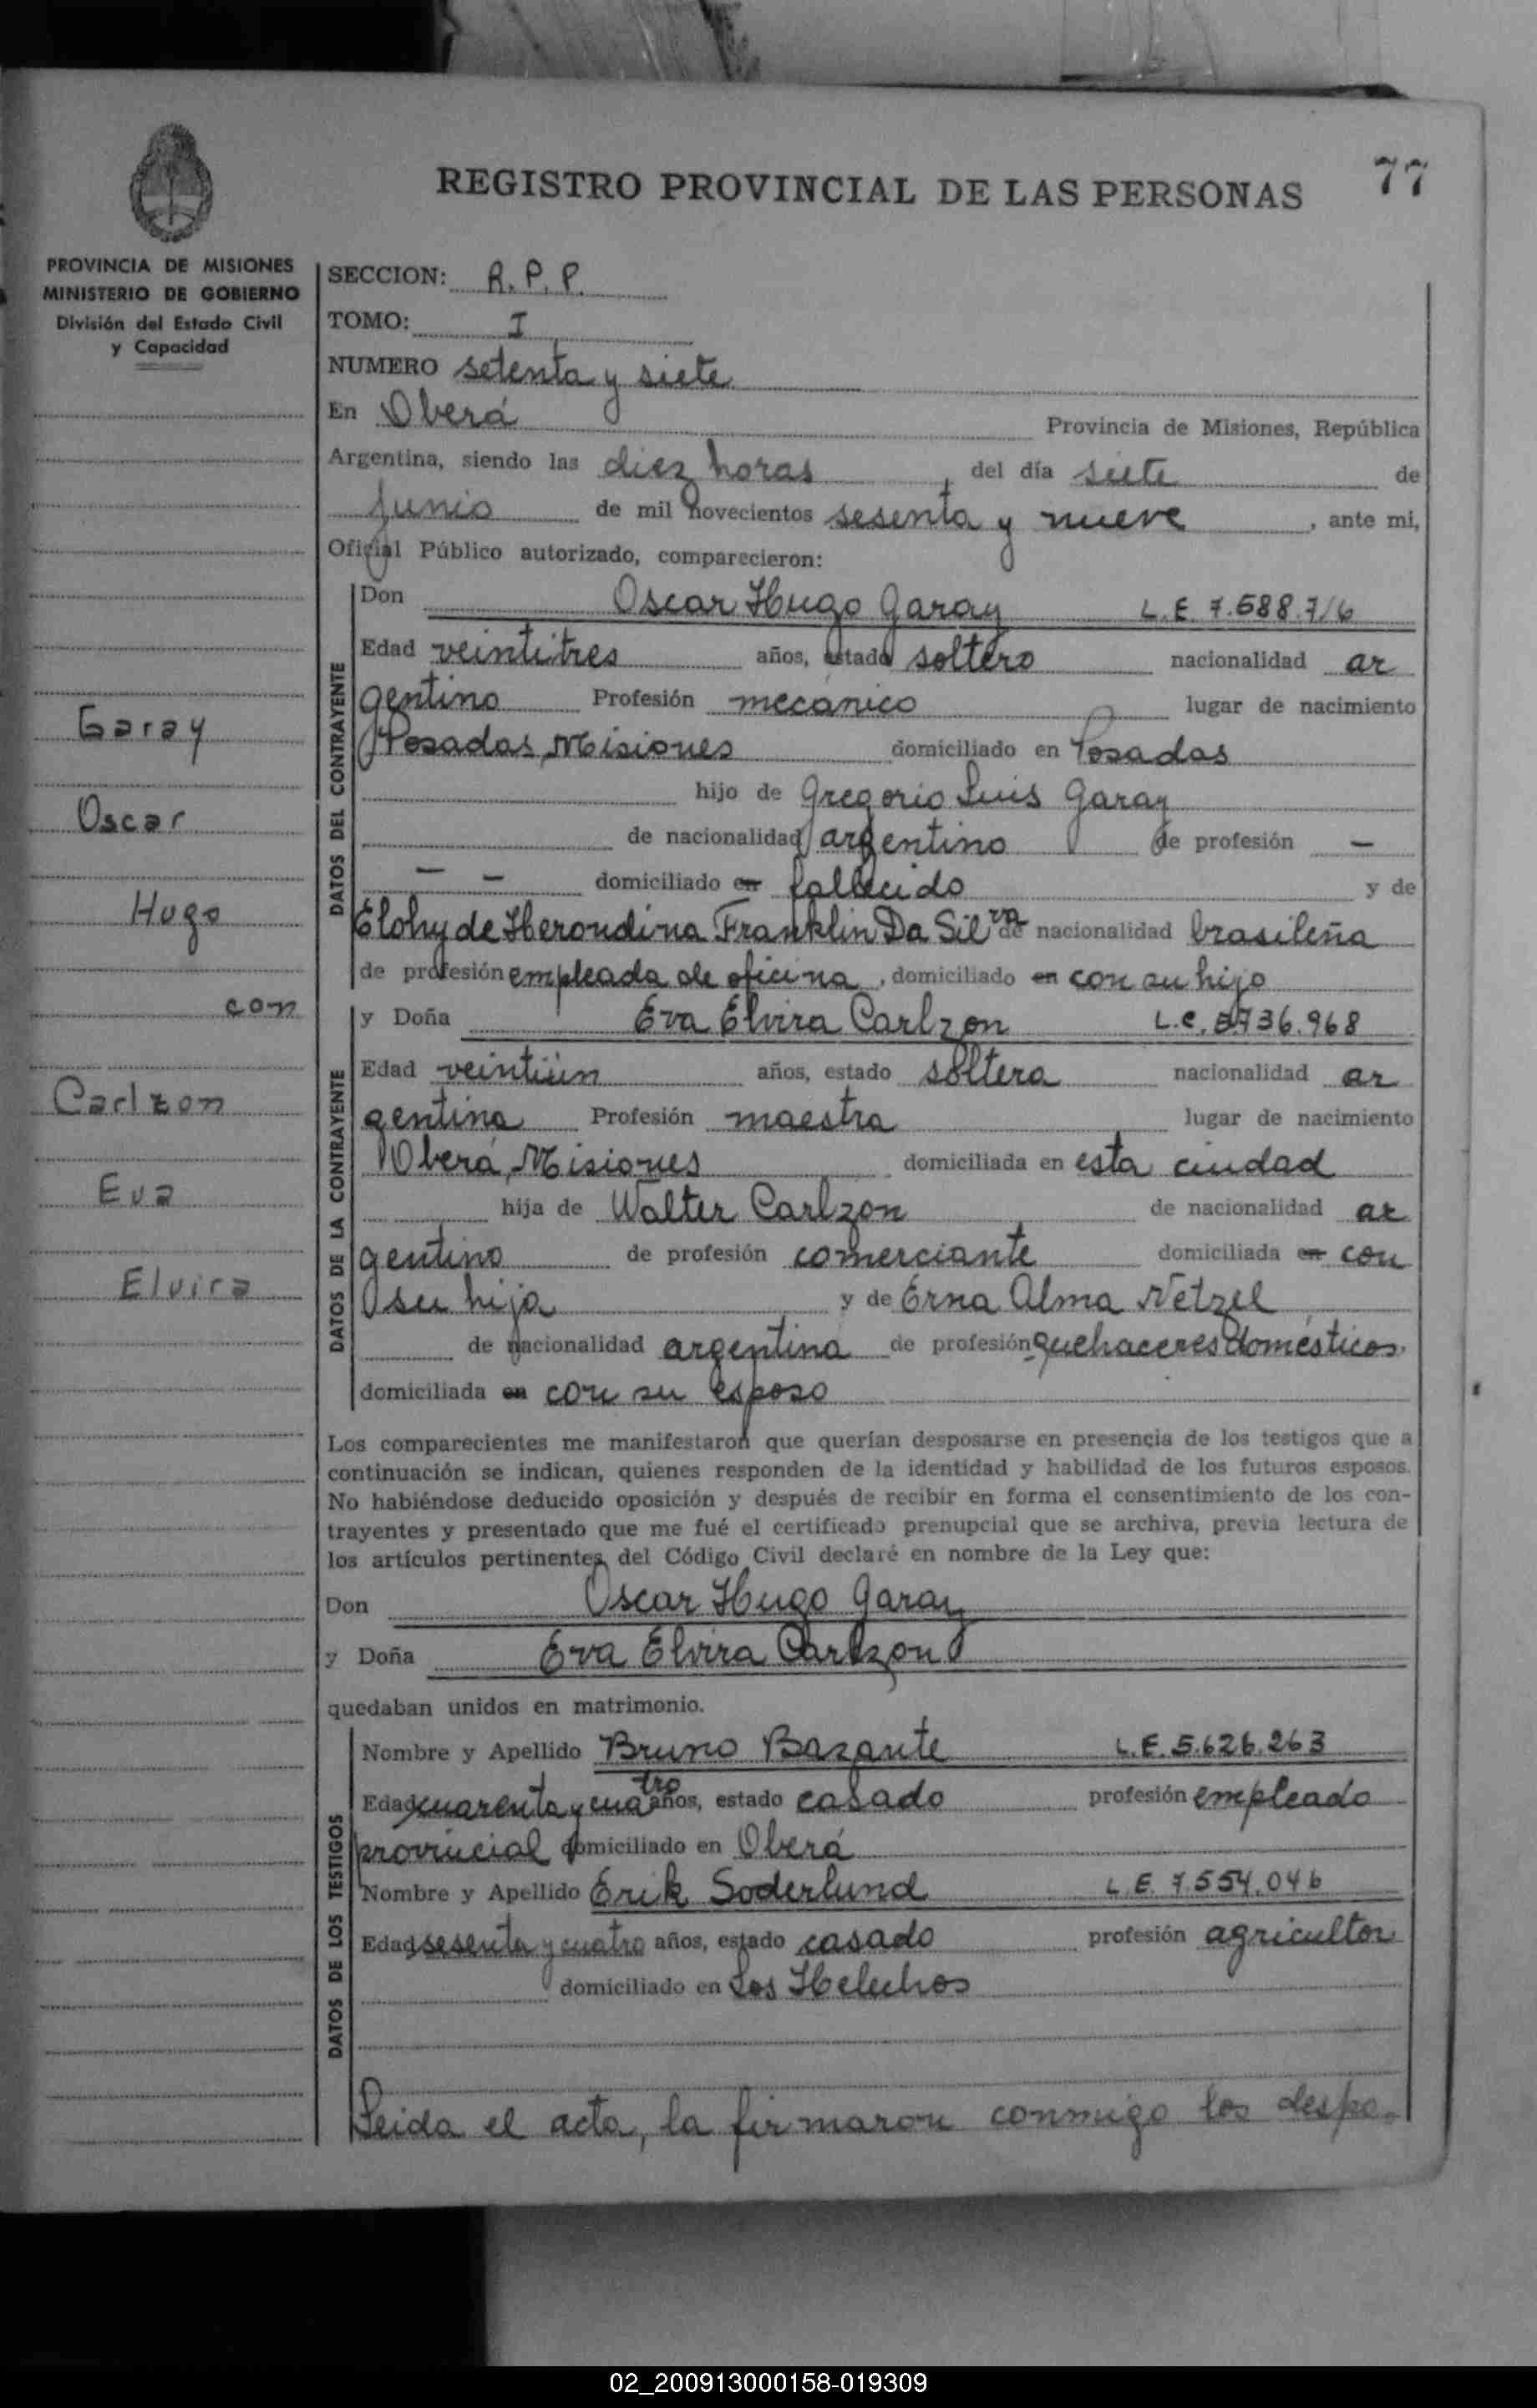 77
REGISTRO PROVINCIAL DE LAS PERSONAS
PROVINCIA DE MISIONES
MINISTERIO DE GOBIERNO
División del Estado Civil
y Capacidad
Garay
Oscar
Hugo
con
Carlzon
Eva
Elvira
SECCION: R. P. P.
TOMO: I
NUMERO setenta y siete
En Oberá Provincia de Misiones, República
Argentina, siendo las diez horas, del día siete de
junio de mil novecientos sesenta y nueve, ante mi,
Oficial Público autorizado, comparecieron:
DATOS DEL CONTRAYENTE
Don Oscar Hugo Garay L.E. 7.588.716
Edad veintitres años, estado soltero nacionalidad ar
gentino Profesión mecánico lugar de nacimiento
Posadas, Misiones domiciliado en Posadas
hijo de Gregorio Luis Garay
de nacionalidad argentino de profesión -
- - domiciliado en fallecido y de
Elohy de Herondina Franklin Da Silva de nacionalidad brasileña
de profesión empleada de oficina, domiciliado en con su hijo
DATOS DE LA CONTRAYENTE
y Doña Eva Elvira Carlzon L.C. 736.968
Edad veintiún años, estado soltera nacionalidad ar
gentina Profesión maestra lugar de nacimiento
Oberá, Misiones domiciliada en esta ciudad
hija de Walter Carlzon de nacionalidad ar
gentino de profesión comerciante domiciliada en con
su hija y de Erna Alma Netzel
de nacionalidad argentina de profesión quehaceres domésticos.
domiciliada en con su esposo
Los comparecientes me manifestaron que querían desposarse en presencia de los testigos que a
continuación se indican, quienes responden de la identidad y habilidad de los futuros esposos.
No habiéndose deducido oposición y después de recibir en forma el consentimiento de los con-
trayentes y presentado que me fué el certificado prenupcial que se archiva, previa lectura de
los artículos pertinentes del Código Civil declaré en nombre de la Ley que:
Don Oscar Hugo Garay
y Doña Eva Elvira Carlzon
quedaban unidos en matrimonio.
DATOS DE LOS TESTIGOS
Nombre y Apellido Bruno Bazante L.E. 5.626.263
Edad cuarenta y cuatro años, estado casado profesión empleado
provincial domiciliado en Oberá
Nombre y Apellido Erik Soderlund L.E. 7.554.046
Edad sesenta y cuatro años, estado casado profesión agricultor
domiciliado en Los Helechos
Leida el acta, la firmaron conmigo los despo-
02_200913000158-019309